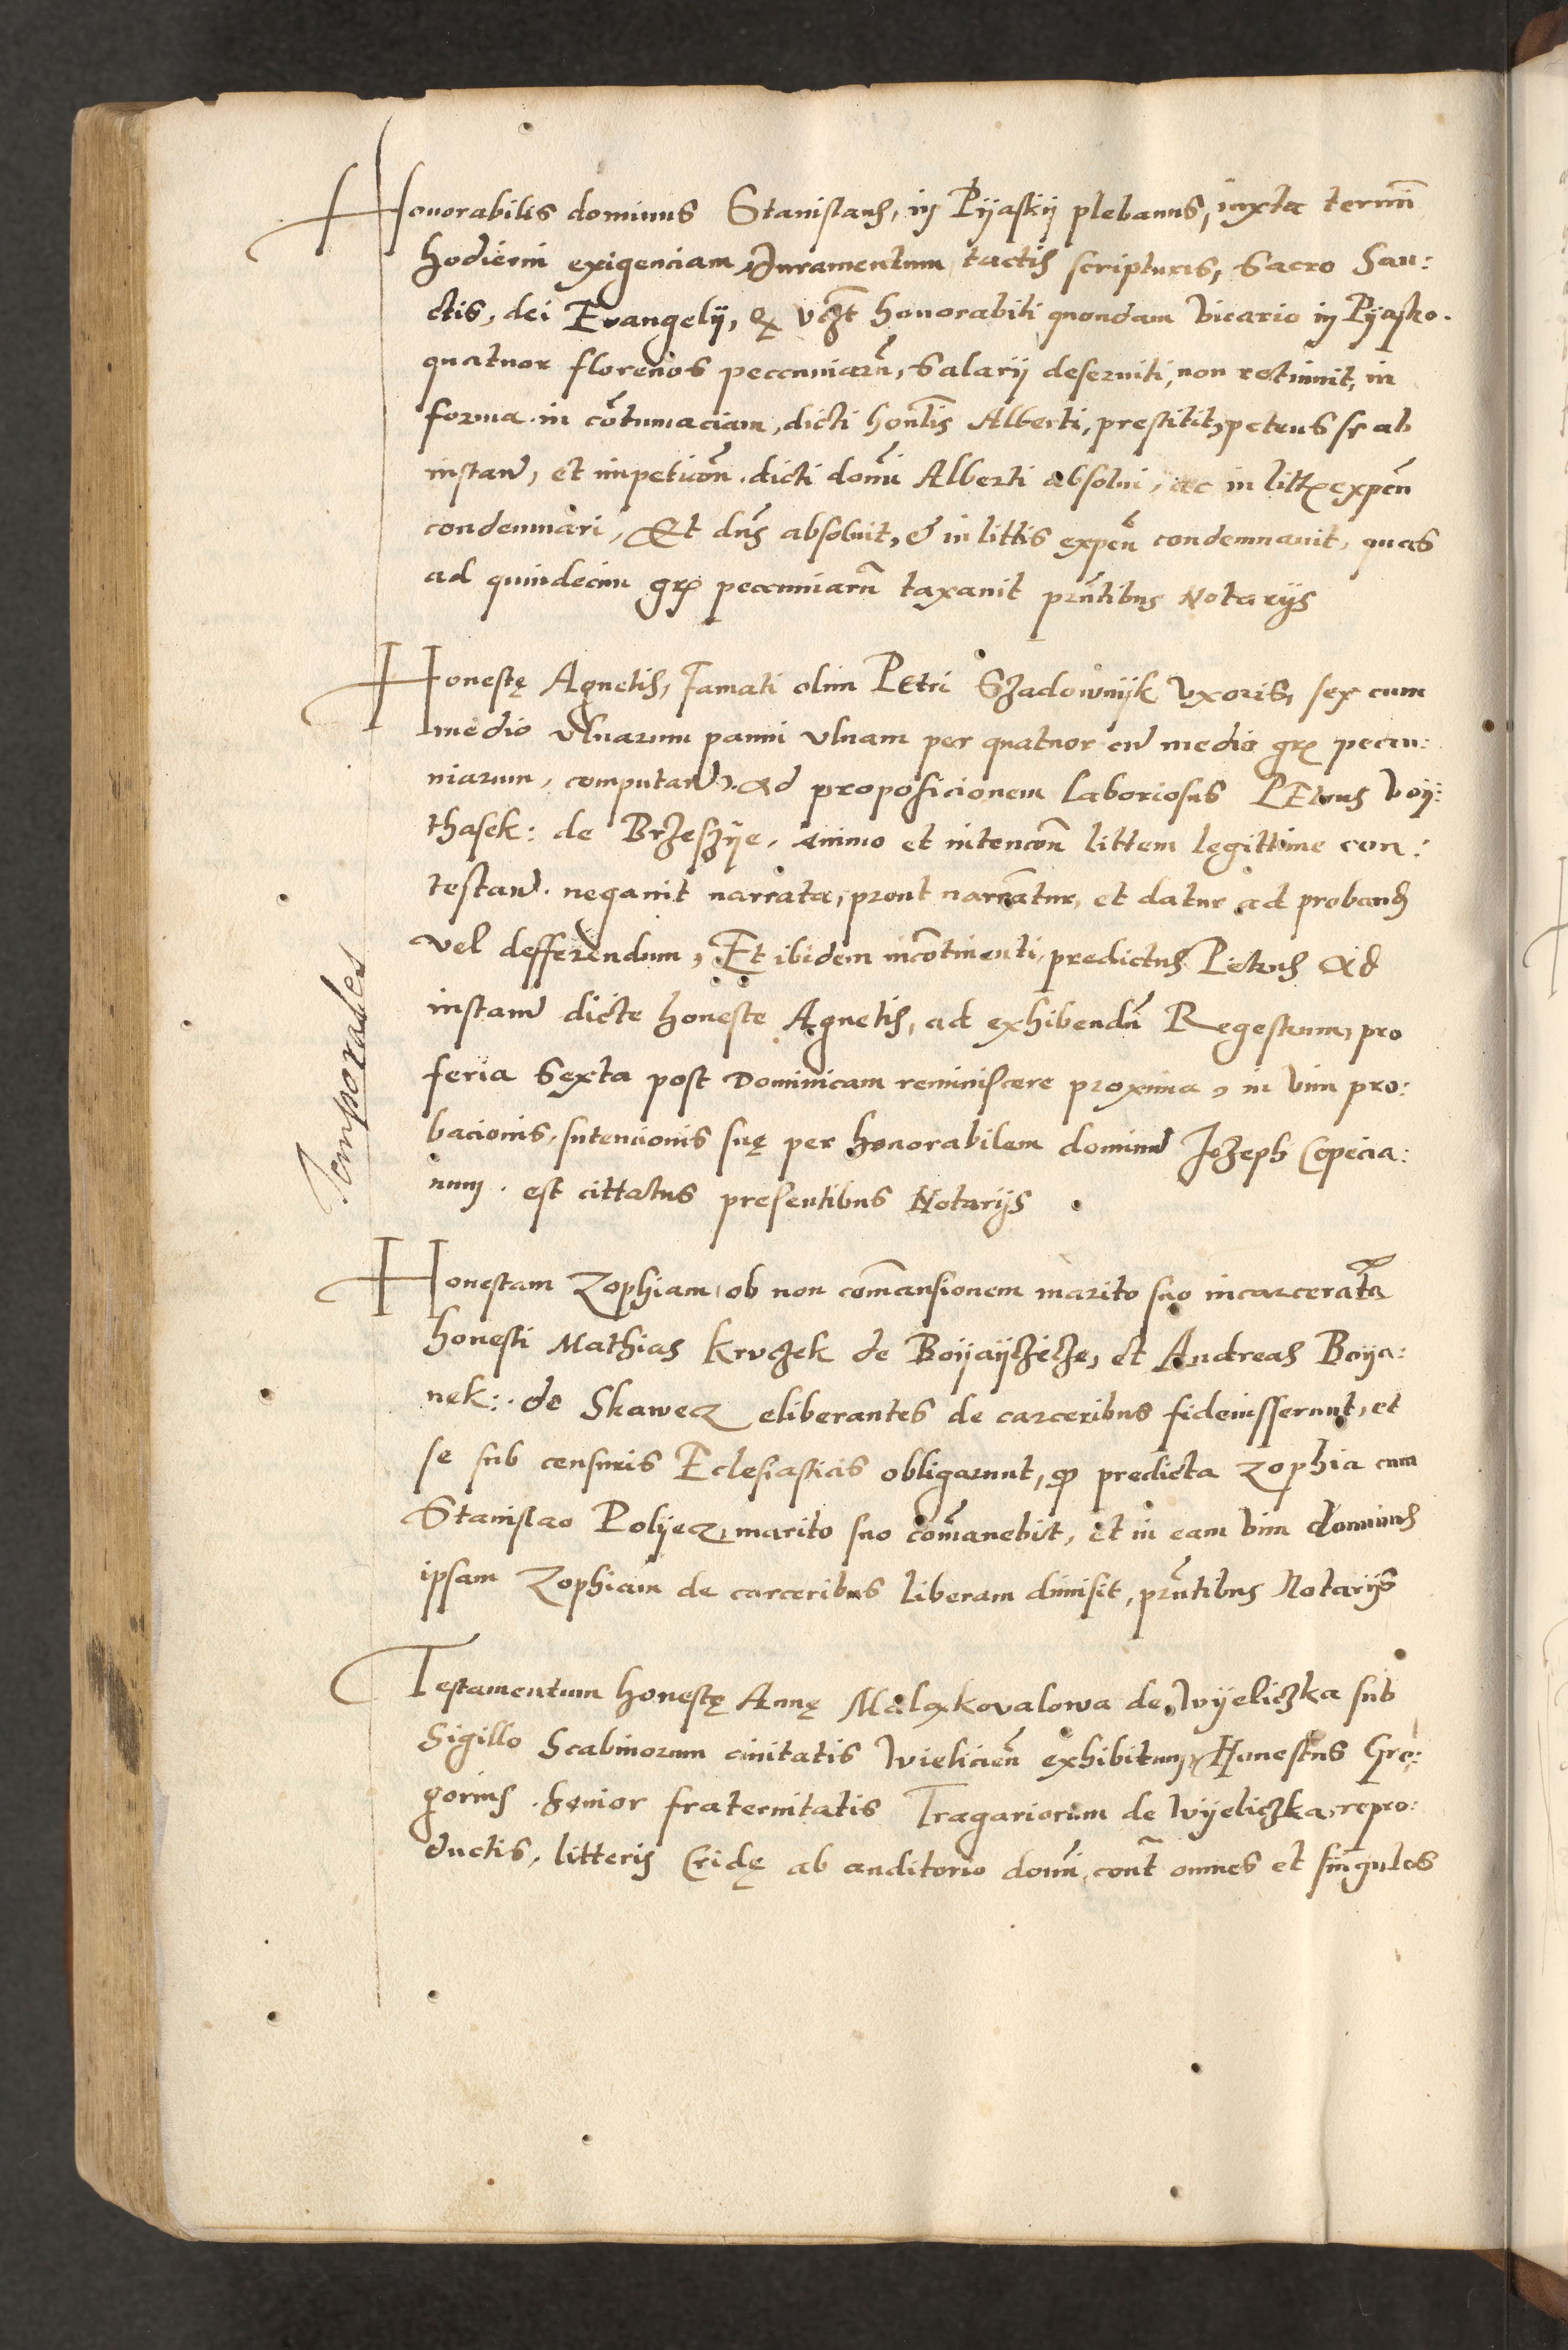 Honorabilis dominus Stanislaus, in Pyaskij plebanus, iuxta termini
hodierni exigenciam Iuramentum tactis scripturis, Sacro San:
ctis, dei Evangelij, ꝙ vczt honorabili quondam Vicario in Pyasko.
quatuor florenos pecuniarū, Salarij deserviti, non retinuit, in
forma in cōtumaciam, dicti honlis Alberti, prestitit, petens se ab
instan, et impeticōn dicti domi Alberti absolui, ac in litt expen
condemnari, Et dns absoluit, & in littis expen condemnauit, quas
ad quindecim gr pecuniarū taxauit pntibus Notarijs
Honestę Agnetis, Famati olim Petri Szadownijk Vxoris, sex cum
medio vlnarum panni vlnam per quatuor cū medio gr pecu:
niarum, computan. Ad proposicionem laboriosus PEtrus Voij:
thasek: de Brzeszije, animo et intencōn littem legittime con:
testan. negauit narrata, prout narrātur, et datur ad proband
vel defferendum, Et ibidem incōtinenti, predictus Petrus Ad
instan dicte honeste Agnetis, ad exhibendū Regestrum, pro
feria Sexta post Dominicam reminiscere proxima, in vim pro:
bacionis, Intencionis suę per honorabilem dominū Jozeph Copecia:
num. est cittatus presentibus Notarijs
Temporales
Honestam Zophiam, ob non comansionem marito suo incarceratā
honesti Mathias Kruczek de Boijaijczicze, et Andreas Boya:
nek: de Skawecz eliberantes de carceribus fideiusserunt, et
se sub censuris Eclesiasticis obligarunt, ꝙ predicta Zophia cum
Stanislao Polijecz, marito suo comanebit, et in eam vim dominus
ipsam Zophiam de carceribus liberam dimisit, pntibus Notarijs
Testamentum honestę Annę Malxkovalowa de Wijeliczka sub
Sigillo Scabinorum ciuitatis Wielicien exhibitum, Honestus Gre:
gorius Senior fraternitatis Tragariorum de Wijeliczka, repro:
ductis, litteris Cridę ab auditorio domi, cont omnes et singulos